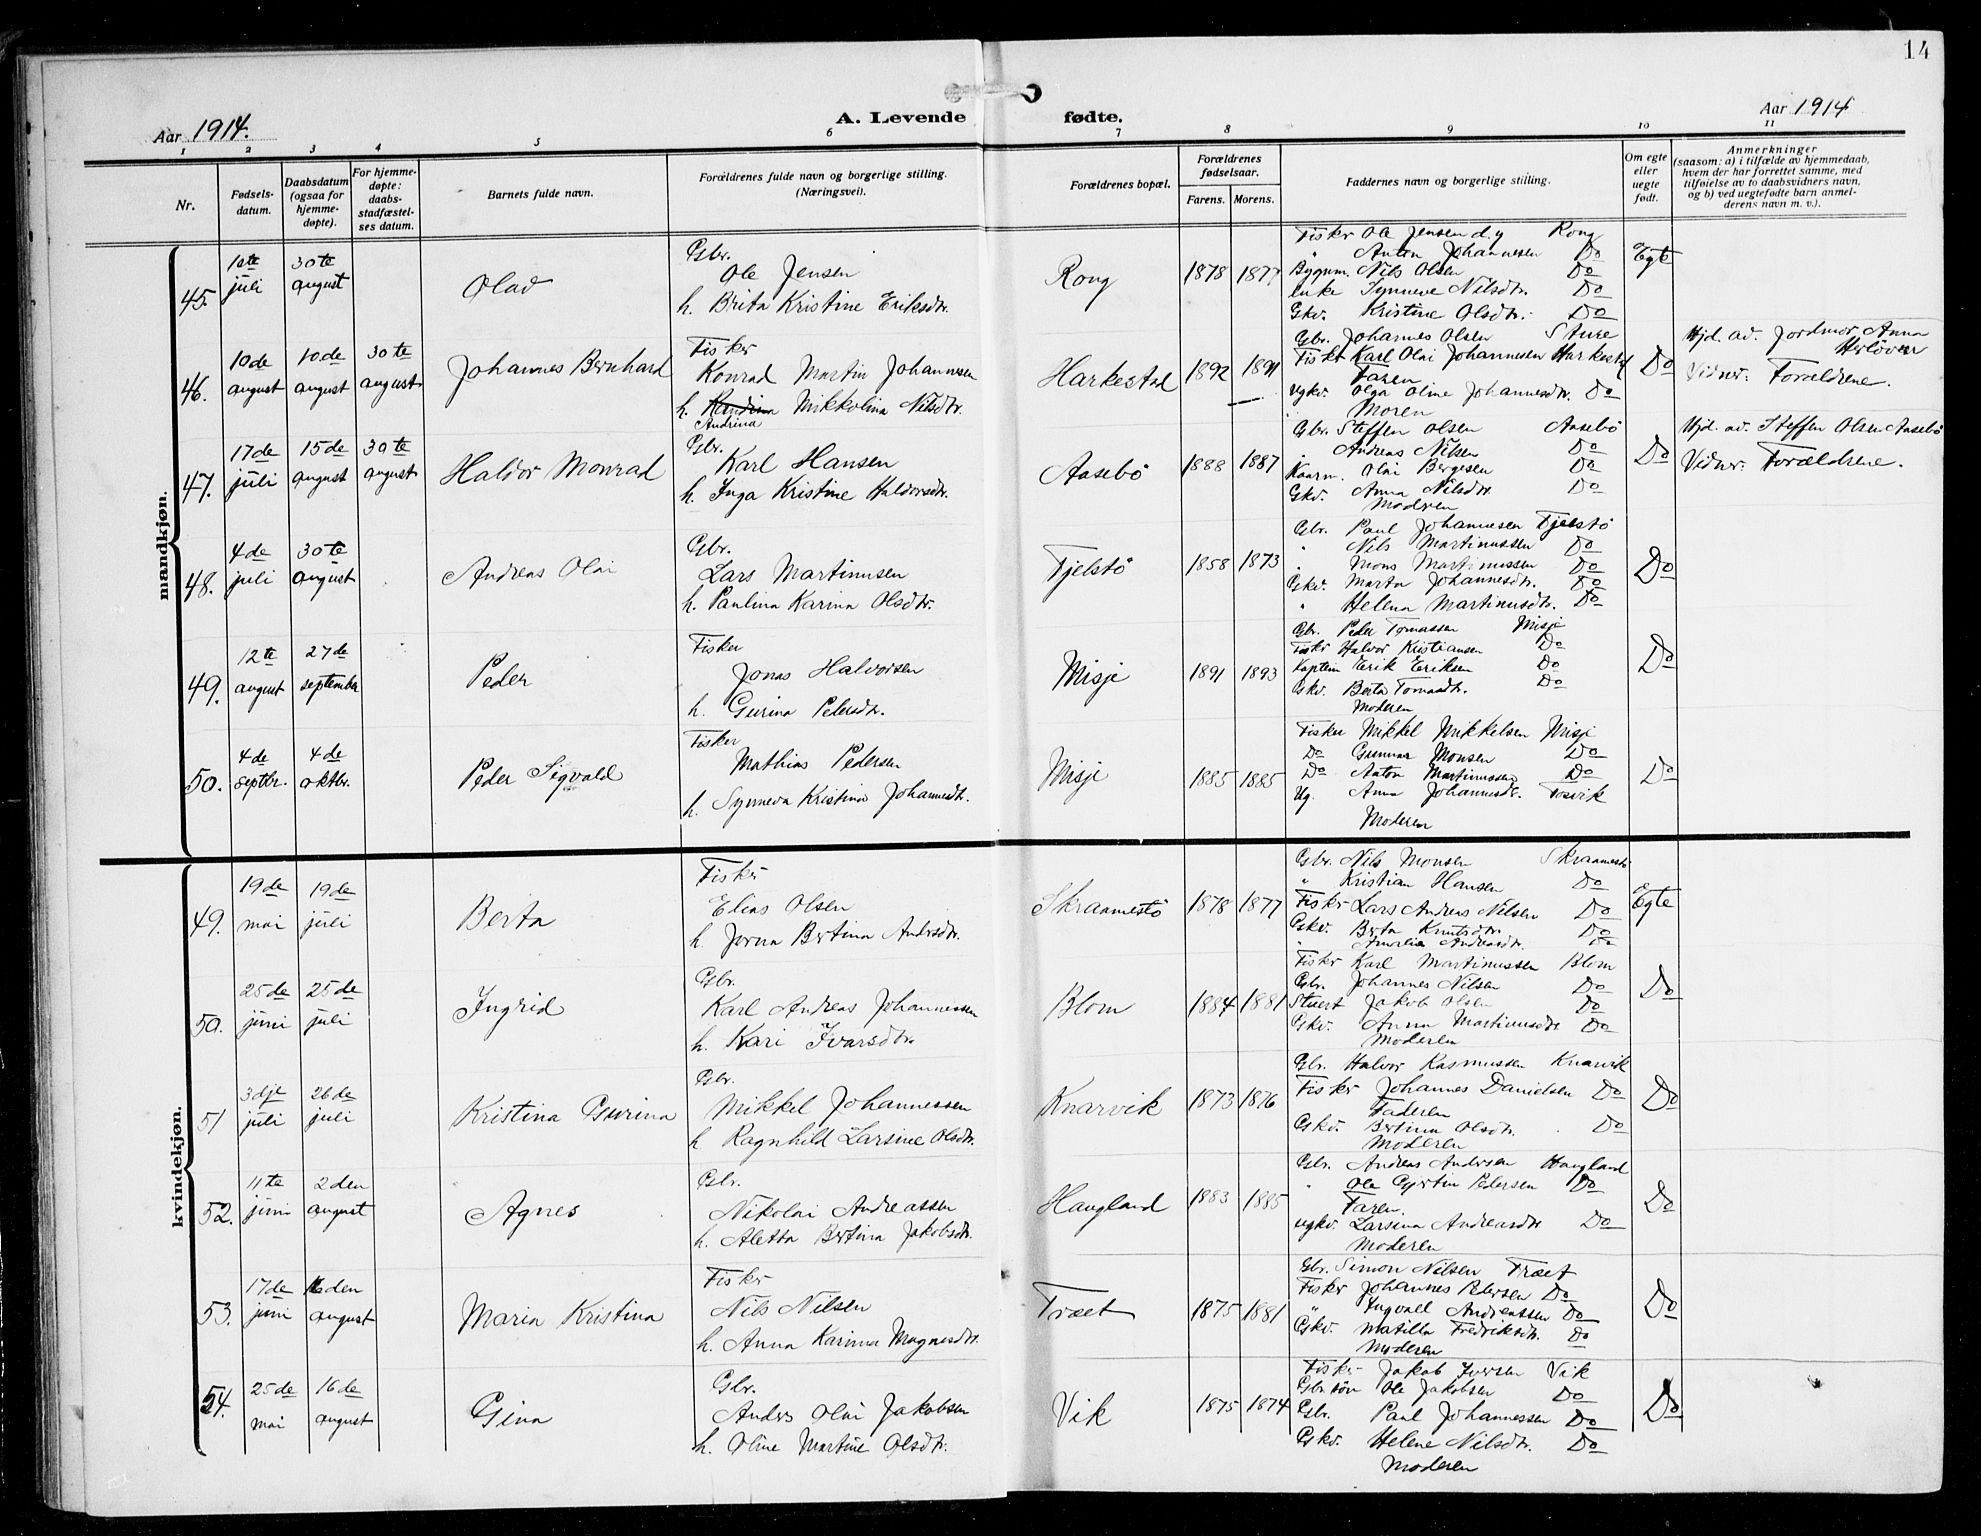 14
Aar 1914.
A. Levende fødte.
Aar 1914
1 2 3 4 5 6 7 8 9 10 11
Nr.
Fødsels-
datum.
Daabsdatum
(ogsaa for
hjemme-
døpte).
For hjemme-
døpte:
daabs-
stadfæstel-
ses datum.
Barnets fulde navn.
Forældrenes fulde navn og borgerlige stilling.
(Næringsvei).
Forældrenes bopæl.
Forældrenes
fødselsaar.
Farens. Morens.
Faddernes navn og borgerlige stilling.
Om egte
eller
uegte
født.
Anmerkninger
(saasom: a) i tilfælde av hjemmedaab,
hvem der har forrettet samme, med
tilføielse av to daabsvidners navn,
og b) ved uegtefødte barn anmel-
derens navn m. v.).
mandkjøn.
45. 10te juli 30te august
Olav
Gbr.
Ole Jensen
h. Brita Kristine Eriksdtr.
Rong 1878 1877
Fisker Ole Jensen d.y Rong
" Anton Johannesen Do
Bygnm. Nils Olsen Do
Enke Synneve Nilsdtr. Do
Gkv. Kristine Olsdtr. Do
Egte
46. 10de august 10de august 30te august
Johannes Bernhard
Fisker
Konrad Martin Johannsen
h. Mikkolina Nilsdtr.
Andrina
Harkestad 1892 1891
Gbr. Johannes Olsen Sture
Fiskr Karl Olai Johannesen Harkestad
Faren
ugkv. Olga Oline Johannesdtr. Do
Moren
Do
Hjd. av. Jordmor Anna
Vidner: Forældrene.
47. 17de juli 15de august 30te august
Haldor Monrad
Gbr.
Karl Hansen
h. Inga Kristine Haldorsdtr.
Aasebö 1888 1887
Gbr. Steffen Olsen Aasebö
" Andreas Nilsen Do
Kaarm. Olai Bergesen Do
Gkv. Anna Nilsdtr. Do
Modren
Do
Hjd. av. Steffen Olsen Aasebö
Vidner: Forældrene.
48. 4de juli 30te august
Andreas Olai
Gbr.
Lars Martinusen
h. Paulina Karina Olsdtr.
Fjelstö 1858 1873
Gbr. Paul Johannesen Fjelstö
" Nils Martinussen Do
" Mons Martinussen Do
Gkv. Marta Johannesdtr. Do
" Helena Martinusdtr. Do
Do
49. 12te august 27de september
Peder
Fisker
Jonas Halvorsen
h. Gurina Pedersdtr.
Misje 1891 1893
Gbr. Peder Tomassen Misje
Fiskr Halvor Kristiansen Do
Kaptein Erik Eriksen Do
Gkv. Berta Tomasdtr. Do
Moderen
Do
50. 4de septbr. 4de oktbr.
Peder Sigvald
Fisker
Mathias Pedersen
h. Synneva Kristina Johannesdtr.
Misje 1885 1885
Fisker Mikkel Mikkelsen Misje
Do Gunnar Monsen Do
Do Anton Martinussen Do
Ug. Anna Johannesdtr. Tosvik
Moderen
Do
kvindekjøn.
49. 19de mai 19de juli
Berta
Fisker
Elias Olsen
h. Jorna Bertina Andersdtr.
Skraamestö 1878 1877
Gbr. Nils Monsen Skraamestö
" Kristian Hansen Do
Fiskr Lars Andreas Nilsen Do
Gkv. Berta Knutsdtr. Do
" Amalia Andreasdtr. Do
Egte
50. 25de juni 25de juli
Ingrid
Gbr.
Karl Andreas Johannessen
h. Kari Ivarsdtr.
Blom 1884 1881
Fisker Karl Martinussen Blom
Gbr. Johannes Nilsen Do
Stuert Jakob Olsen Do
Gkv. Anna Martinusdtr. Do
Moderen
Do
51 3dje juli 26de juli
Kristina Gurina
Gbr.
Mikkel Johannessen
h Ragnhild Larsine Olsdtr.
Knarvik 1873 1876
Gbr. Halvor Rasmussen Knarvik
Fisker Johannes Danielsen Do
Faderen
Gkv. Bertina Olsdtr. Do
Moderen
Do
52. 11te juni 2den august
Agnes
Gbr.
Nikolai Andreassen
h. Aletta Bertina Jakobsdtr.
Haugland 1883 1885
Gbr. Andreas Andersen Haugland
" Ole Gjertin Pedersen Do
Faren.
ugkv. Larsina Andreasdtr Do
Moderen
Do
53. 17de juni 16den august
Maria Kristina
Fisker
Nils Nilsen
h. Anna Karina Magnesdtr.
Træet 1875 1881
Gbr. Simon Nilsen Træet
Fiskr Johannes Petersen Do
" Ingvald Andreassen Do
Gkv. Matilla Fredriksdtr. Do
Moderen
Do
54. 25de mai 16de august
Gina
Gbr.
Anders Olai Jakobsen
h. Oline Martine Olsdtr.
Vik 1875 1874
Fisker Jakob Iversen Vik
Gbr.sön Ole Jakobsen Do
Gbr. Paul Johannessen Do
Gkv. Helene Nilsdtr. Do
Moderen
Do